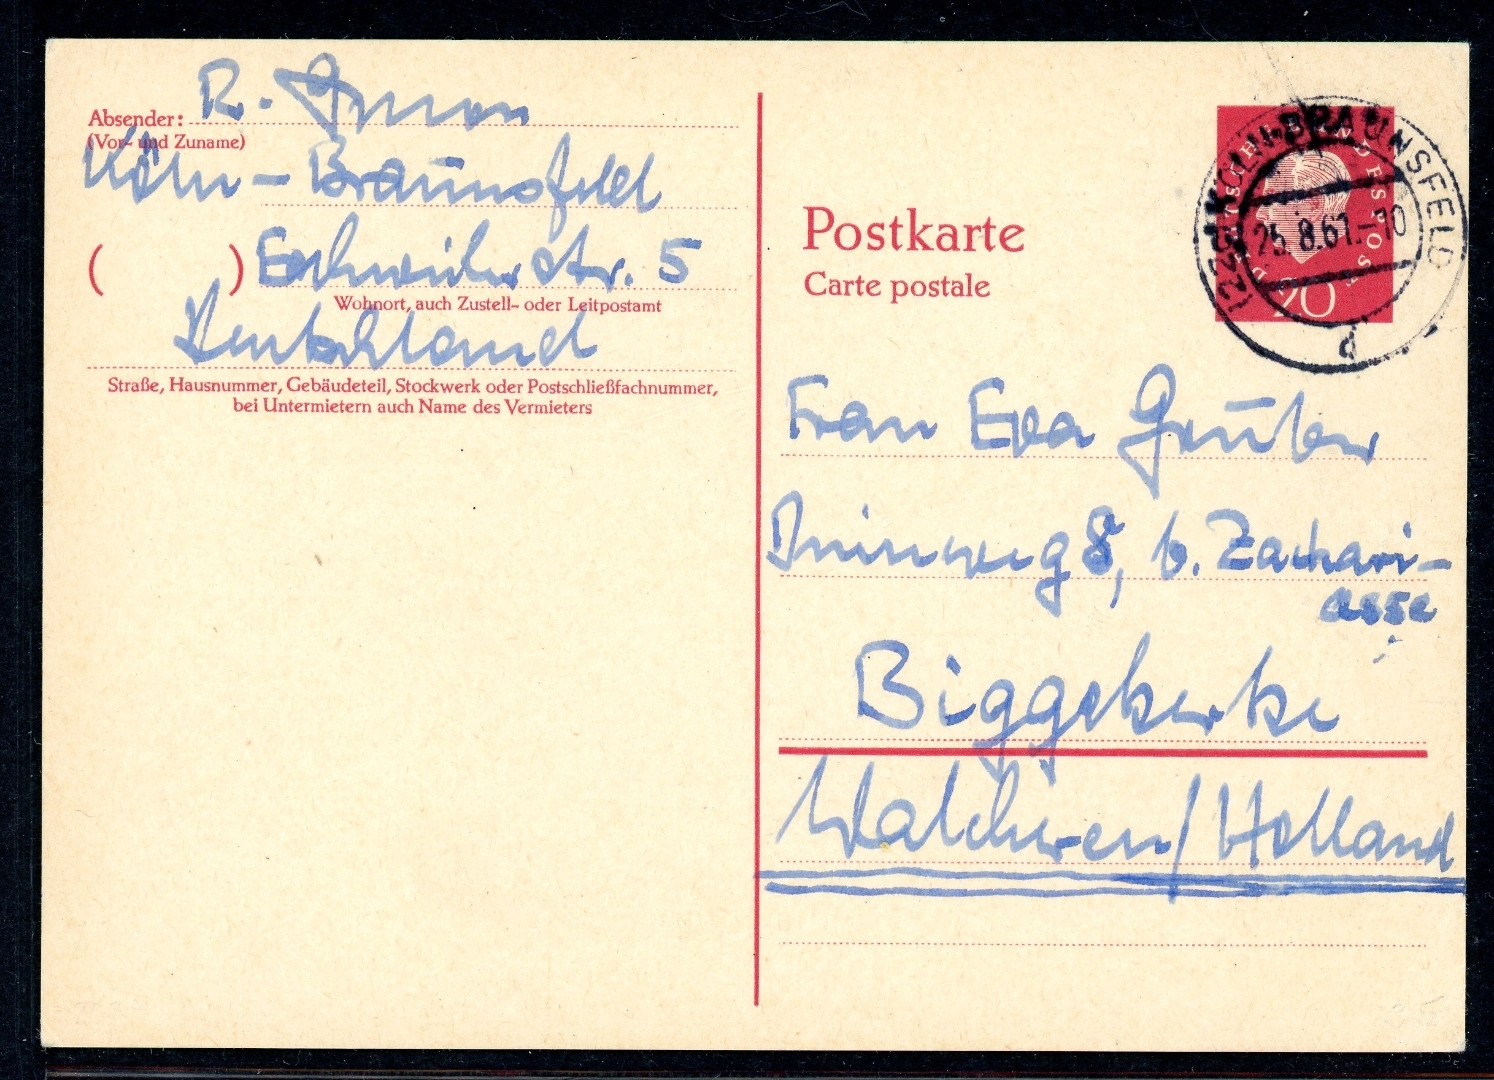 Absender: R.
(Vor- und Zuname)
Köln - Braunsfeld
( ) Eschweilerstr. 5
Wohnort, auch Zustell- oder Leitpostamt
Deutschland
Straße, Hausnummer, Gebäudeteil, Stockwerk oder Postschließfachnummer,
bei Untermietern auch Name des Vermieters
Postkarte
Carte postale
DEUTSCHE BUNDESPOST
20
(22c) KÖLN-BRAUNSFELD
25.8.61.-10
d
Frau Eva Grüber
8, b. Zachari-
asse
Biggekerke
Walcheren/Holland